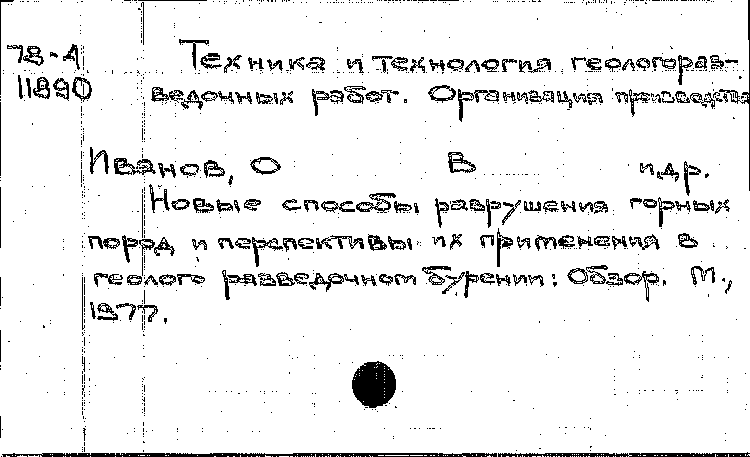 78-А Техника и технология геологораз-
11890 ведочных работ. Организация производства
Иванов, О В и др.
Новые способы разрушения горных
пород и перспективы их применения в
геолого разведочном бурении: Обзор. М.,
1977.